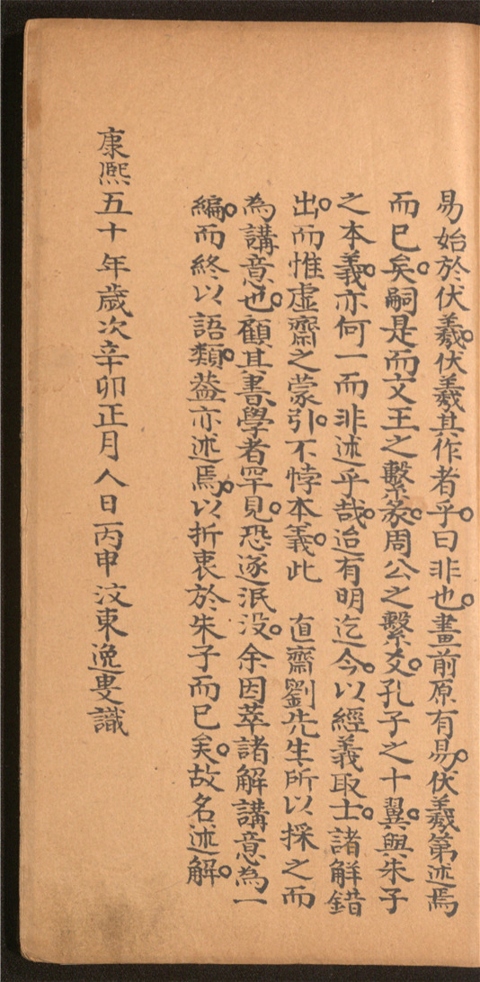 易始於伏羲。伏羲其作者乎。曰非也。畫前原有易。伏羲第述焉
而已矣。嗣是而文王之繫彖。周公之繫爻。孔子之十翼。與朱子
之本義。亦何一而非述乎哉。迨有明迄今。以經義取士。諸解錯
出。而惟虛齋之蒙引。不悖本義。此　直齋劉先生所以採之而
為講意也。顧其書學者罕見。恐逐泯沒。余因萃諸解講意為一
編。而終以語類。葢亦述焉。以折衷於朱子而已矣。故名述解。
康熙五十年歲次辛卯正月人日丙申汶東逸叟識